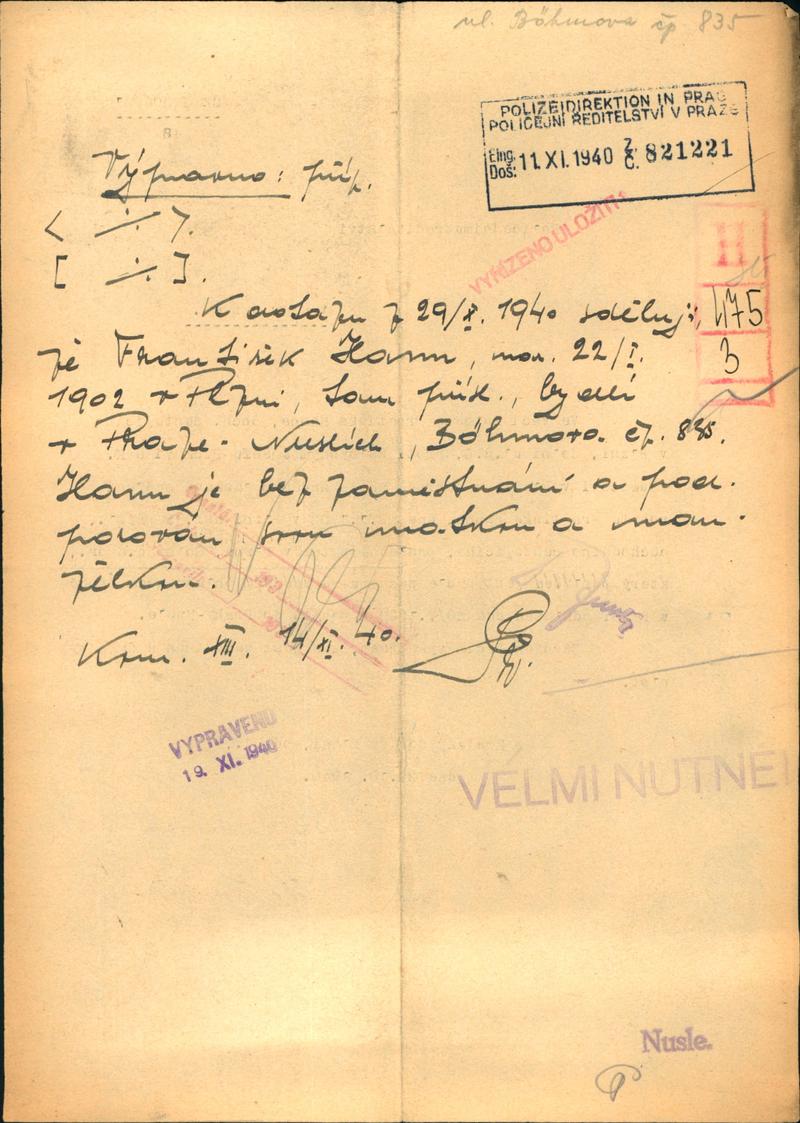 ul. Böhmova čp 835
POLIZEIDIREKTION IN PRAG
POLICEJNÍ ŘEDITELSTVÍ V PRAZE
Eing. Došl. 11.XI.1940 Z. Č. 821221
Výpravno: příp.
< ·/· >.
[ ·/· ].
VYŘÍZENO ULOŽITI
H
K dotazu z 29/X. 1940 sděluji,
475
že František Hann, nar. 22/I.
3
1902 v Plzni, tam přísl., bydlí
v Praze - Nuslích, Böhmova čp. 835.
Hann je bez zaměstnání a pod-
porován svou matkou a man-
želkou.
Kom. XIII. 14/XI. 40.
VYPRAVENO
19. XI. 1940
VELMI NUTNÉ!
Nusle.